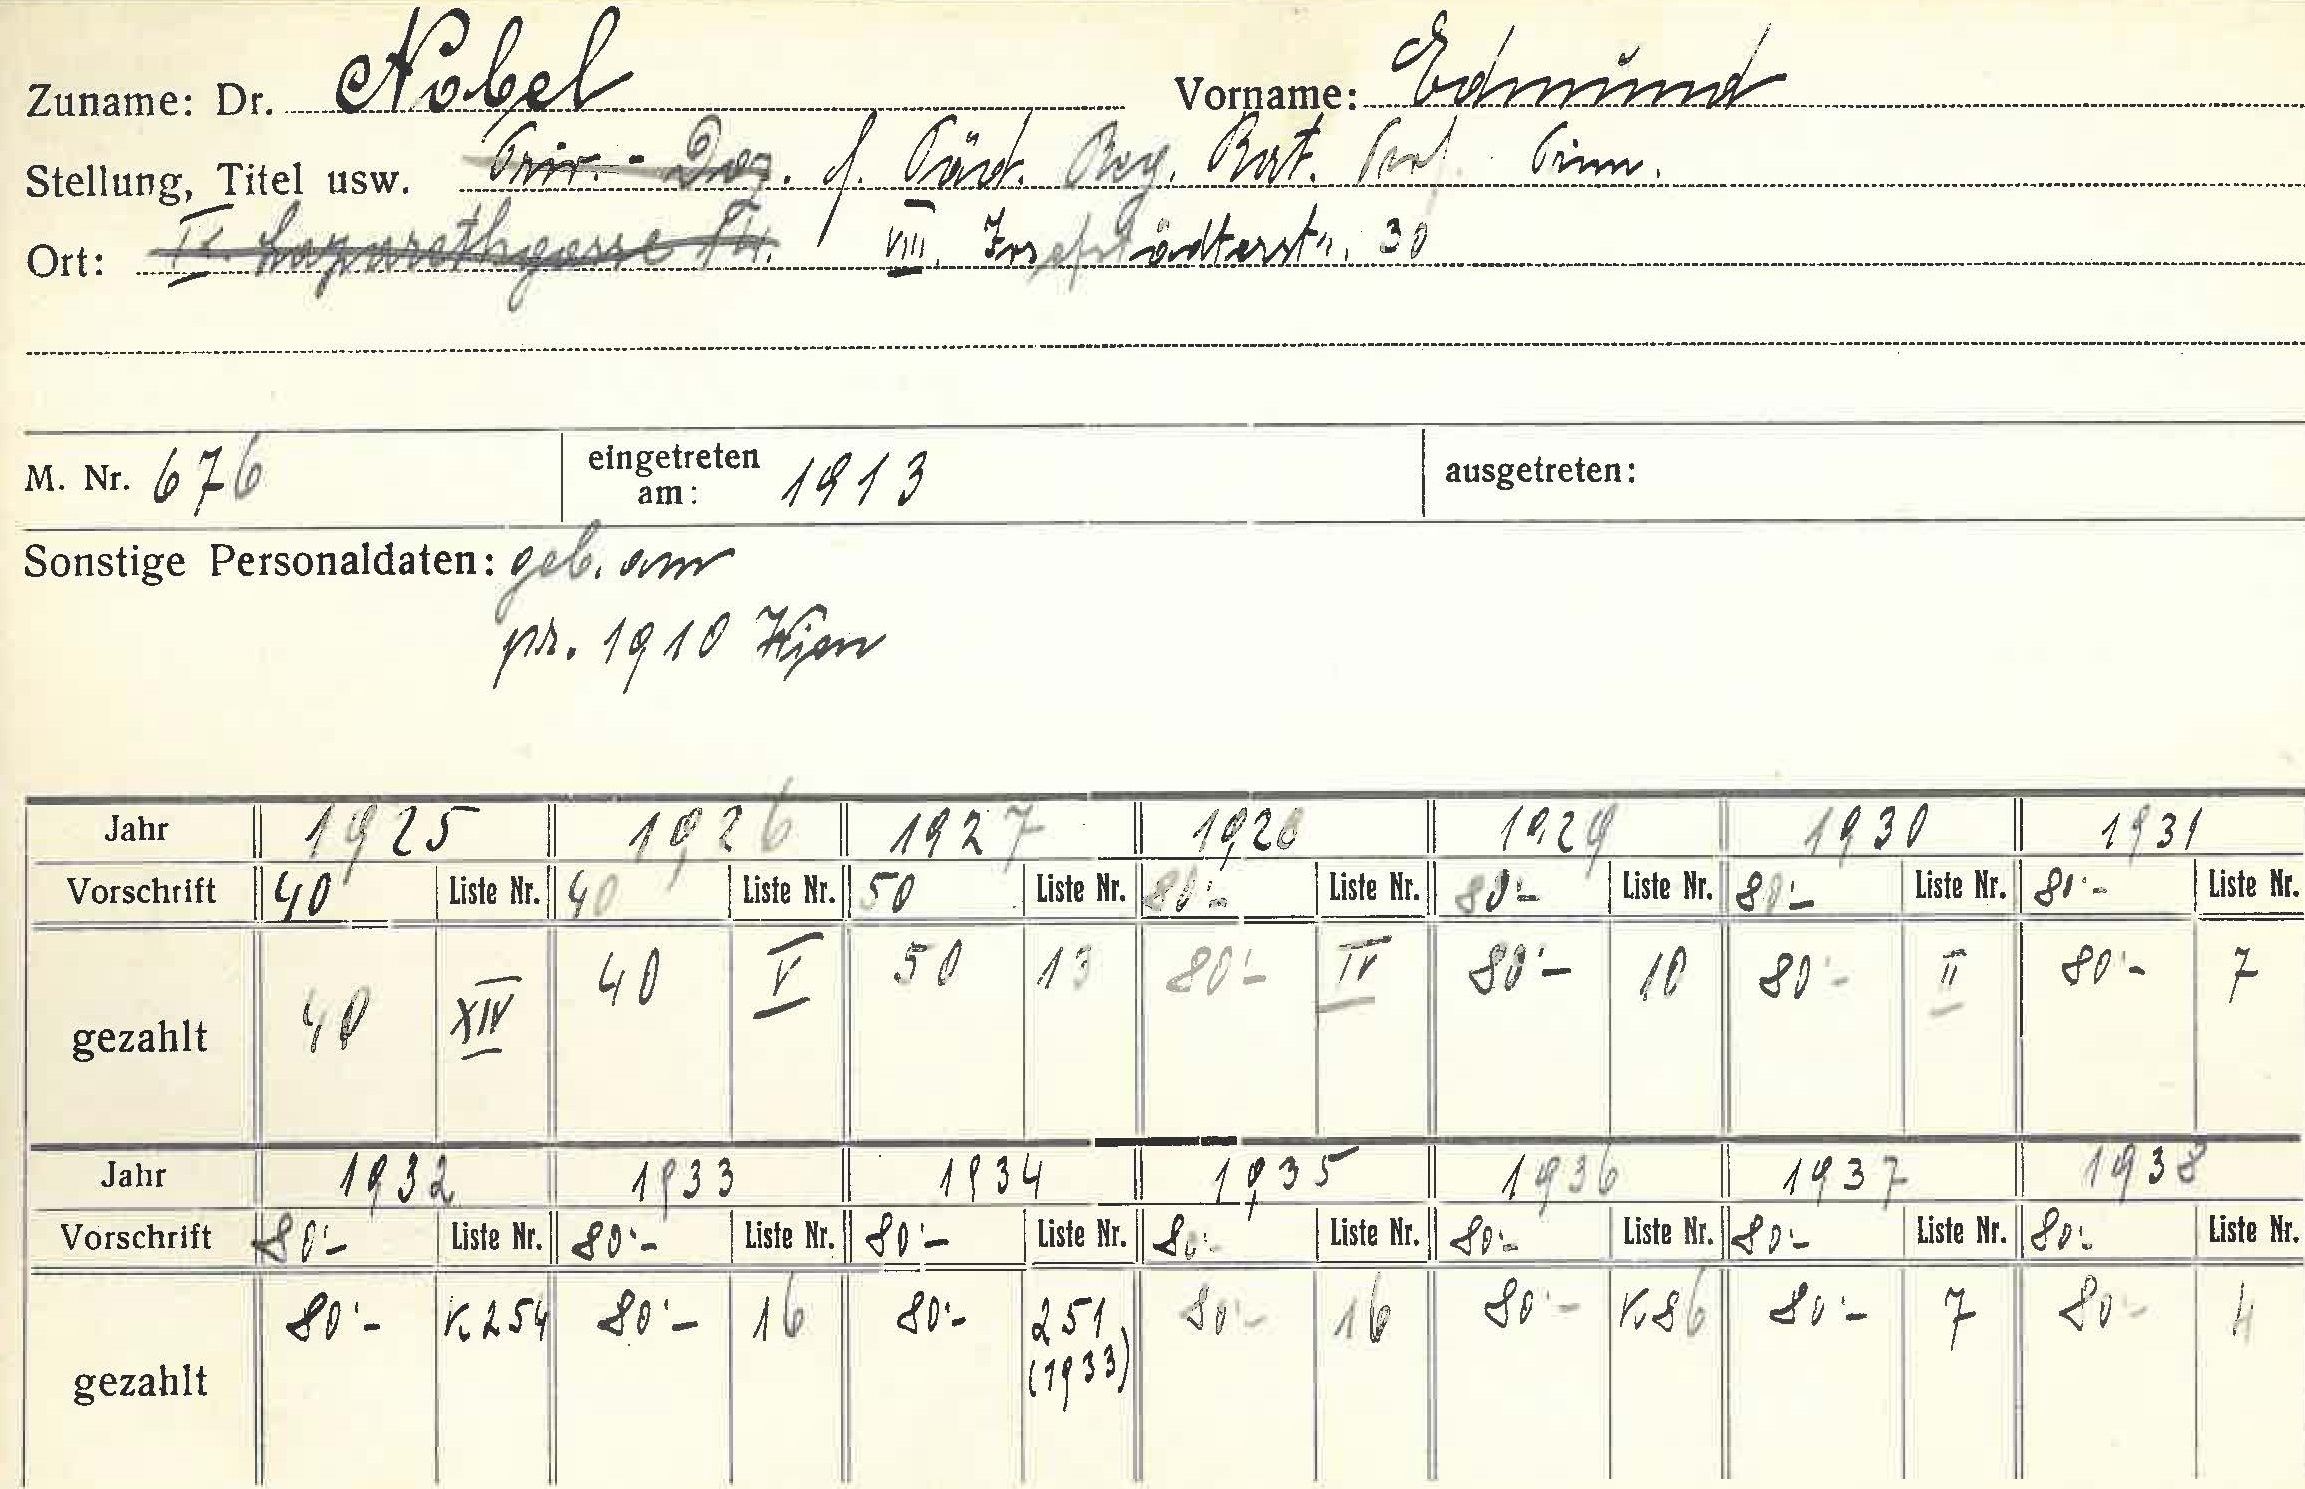 Zuname: Dr. Nobel Vorname: Edmund
Stellung, Titel usw. Priv.-Doz. f. Päd. Reg. Rat. Prof. Prim.
Ort: IX. Lazarethgasse 14. VIII. Josefstädterstr. 30
M. Nr. 676 eingetreten am: 1913 ausgetreten:
Sonstige Personaldaten: geb. am
pr. 1910 Wien
Jahr 1925 1926 1927 1928 1929 1930 1931
Vorschrift 40 Liste Nr. 40 Liste Nr. 50 Liste Nr. 80'- Liste Nr. 80'- Liste Nr. 80'- Liste Nr. 80'- Liste Nr.
gezahlt 40 XIV 40 V 50 13 80'- IV 80'- 10 80'- II 80'- 7
Jahr 1932 1933 1934 1935 1936 1937 1938
Vorschrift 80'- Liste Nr. 80'- Liste Nr. 80'- Liste Nr. 80'- Liste Nr. 80'- Liste Nr. 80'- Liste Nr. 80'- Liste Nr.
gezahlt 80'- K 254 80'- 16 80'- 251 (1933) 80'- 16 80'- K 86 80'- 7 80'- 4